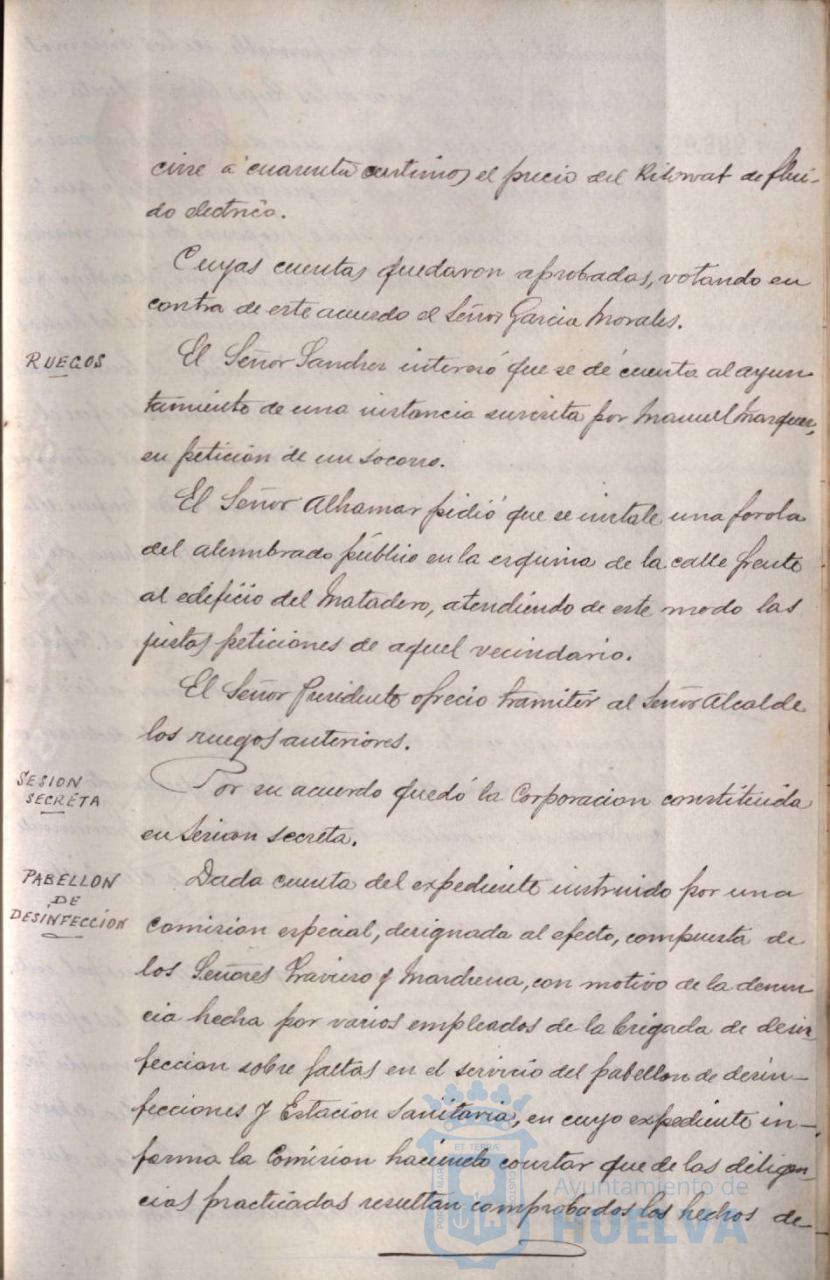 cirse á cuarenta centimos el precio del Kilowat de flui-
do electrico.
Cuyas cuentas quedaron aprobadas, votando en
contra de este acuerdo el Señor Garcia Morales.
RUEGOS
El Señor Sanchez interesó que se dé cuenta al ayun-
tamiento de una instancia suscrita por Manuel Marquez,
en petición de un socorro.
El Señor Alhamar pidió que se instale una farola
del alumbrado público en la esquina de la calle frente
al edificio del Matadero, atendiendo de este modo las
justas peticiones de aquel vecindario.
El Señor Presidente ofrecio tramitar al Señor Alcalde
los ruegos anteriores.
SESION
SECRETA
Por su acuerdo quedó la Corporacion constituida
en Sesion secreta.
PABELLON
DE
DESINFECCION
Dada cuenta del expediente instruido por una
Comision especial, designada al efecto, compuesta de
los Señores Traviero y Marchena, con motivo de la denun-
cia hecha por varios empleados de la brigada de desin-
feccion sobre faltas en el servicio del pabellon de desin-
fecciones y Estacion Sanitaria, en cuyo expediente in-
forma la Comision haciendo constar que de las diligen-
cias practicadas resultan comprobados los hechos de-
Ayuntamiento de
HUELVA